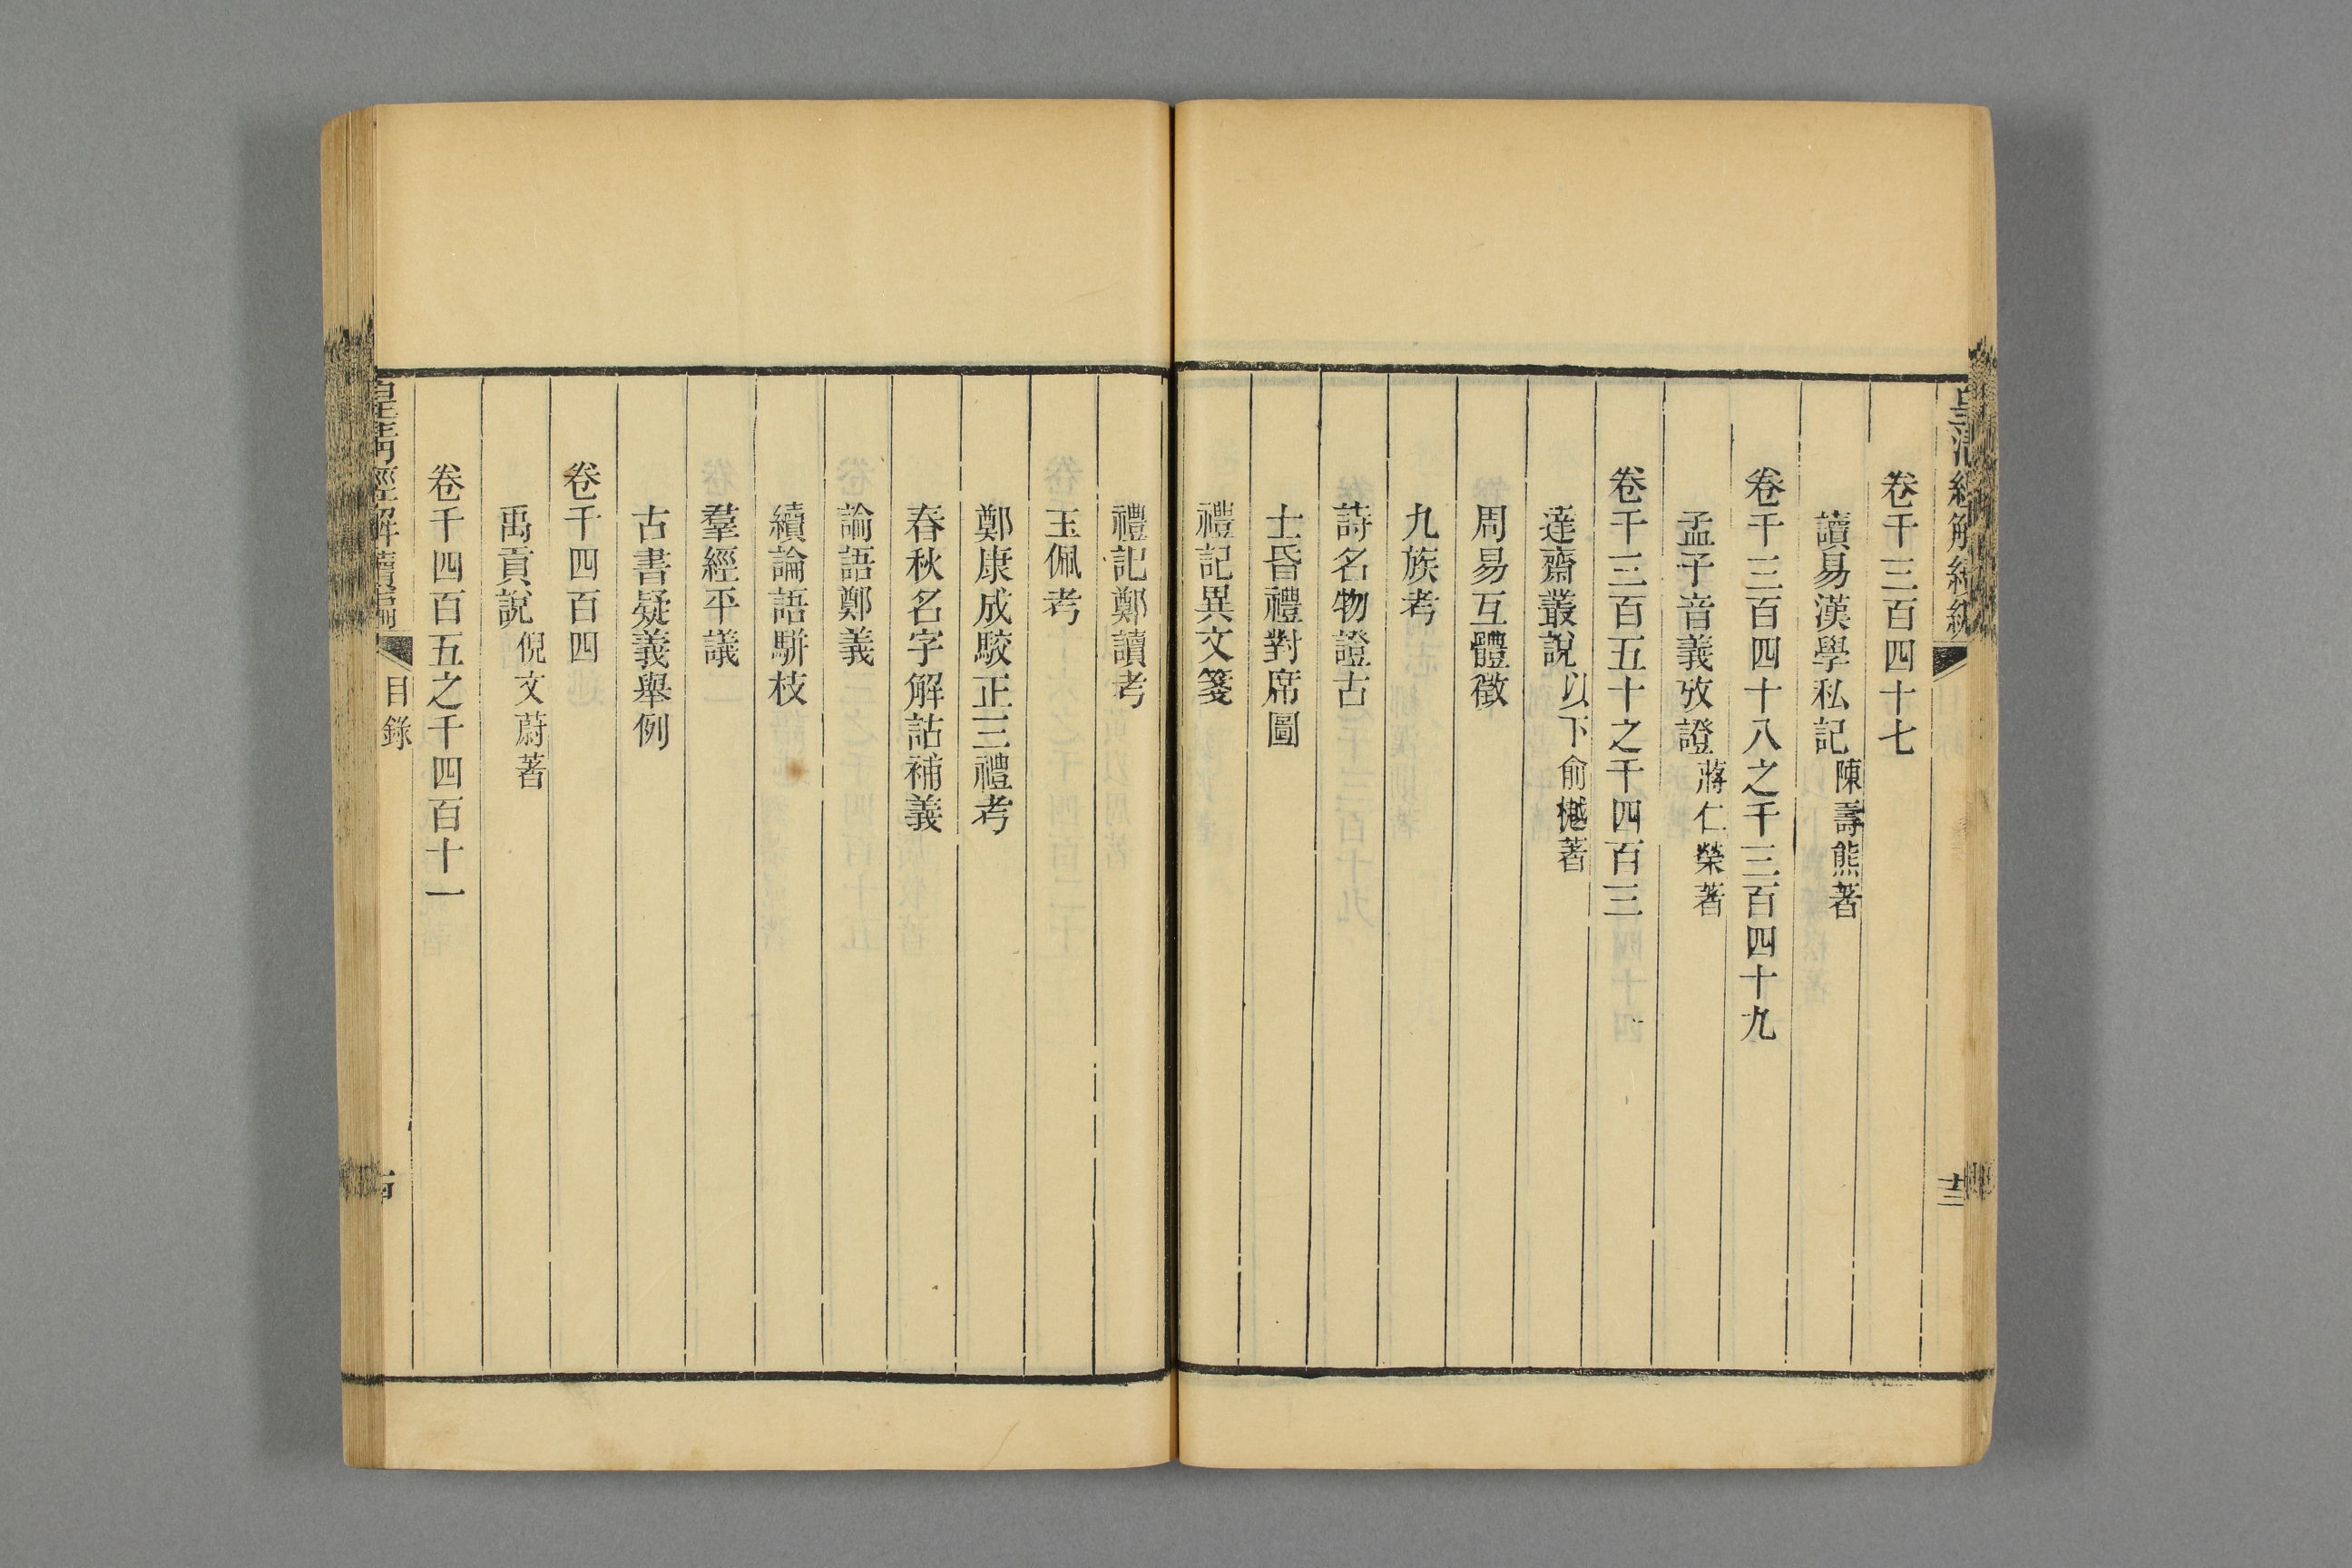 卷千三百四十七
讀易漢學私記陳壽熊著
卷千三百四十八之千三百四十九
孟子音義攷證蔣仁榮著
卷千三百五十之千四百三
達齋叢說以下俞樾著
周易互體徵
九族考
詩名物證古
士昏禮對席圖
禮記異文箋
禮記鄭讀考
玉佩考
鄭康成駮正三禮考
春秋名字解詁補義
論語鄭義
續論語駢枝
羣經平議
古書疑義舉例
卷千四百四
禹貢說倪文蔚著
卷千四百五之千四百十一
皇清經解續編 目錄